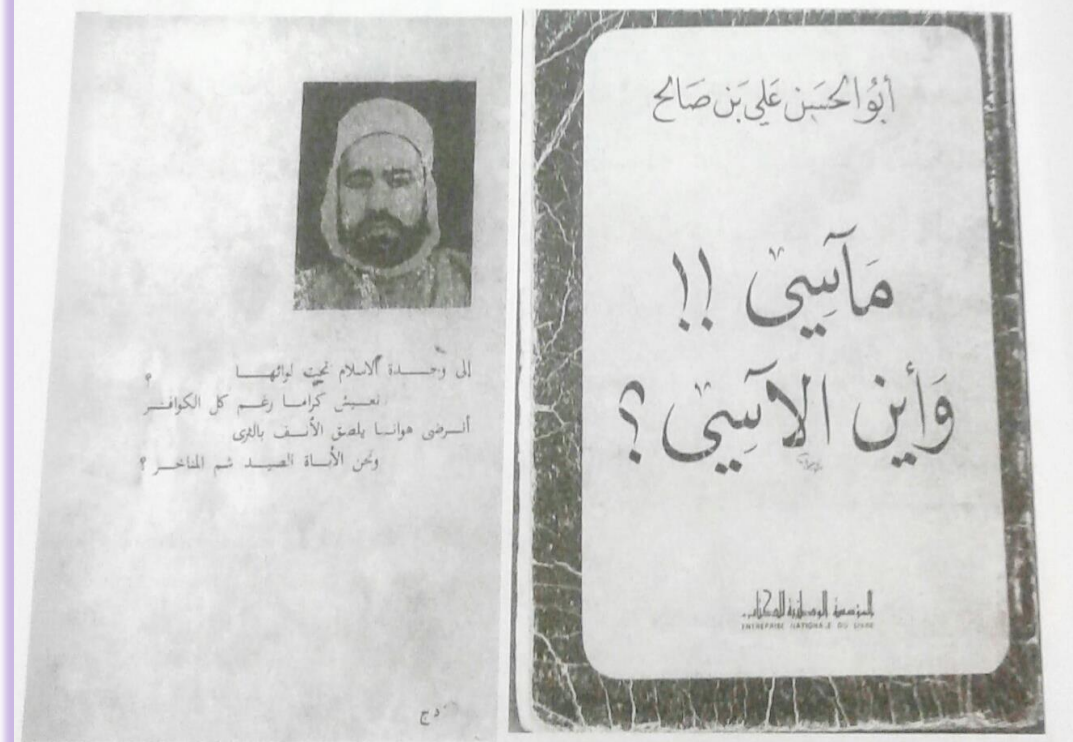 أبُو الحَسَن عَلي بَن صَالح
مَآسِي !!
وَأين الآسِي ؟
المؤسسة الوطنية للكتاب
ENTREPRISE NATIONALE DU LIVRE
إلى وحـــدة الاسلام تحت لوائهـا
نعيش كراما رغـم كل الكوافـر ؟
أنـرضى هوانـا يلصق الأنـف بالثرى
ونحن الأباة الصيـد شم المناخـر ؟
دج